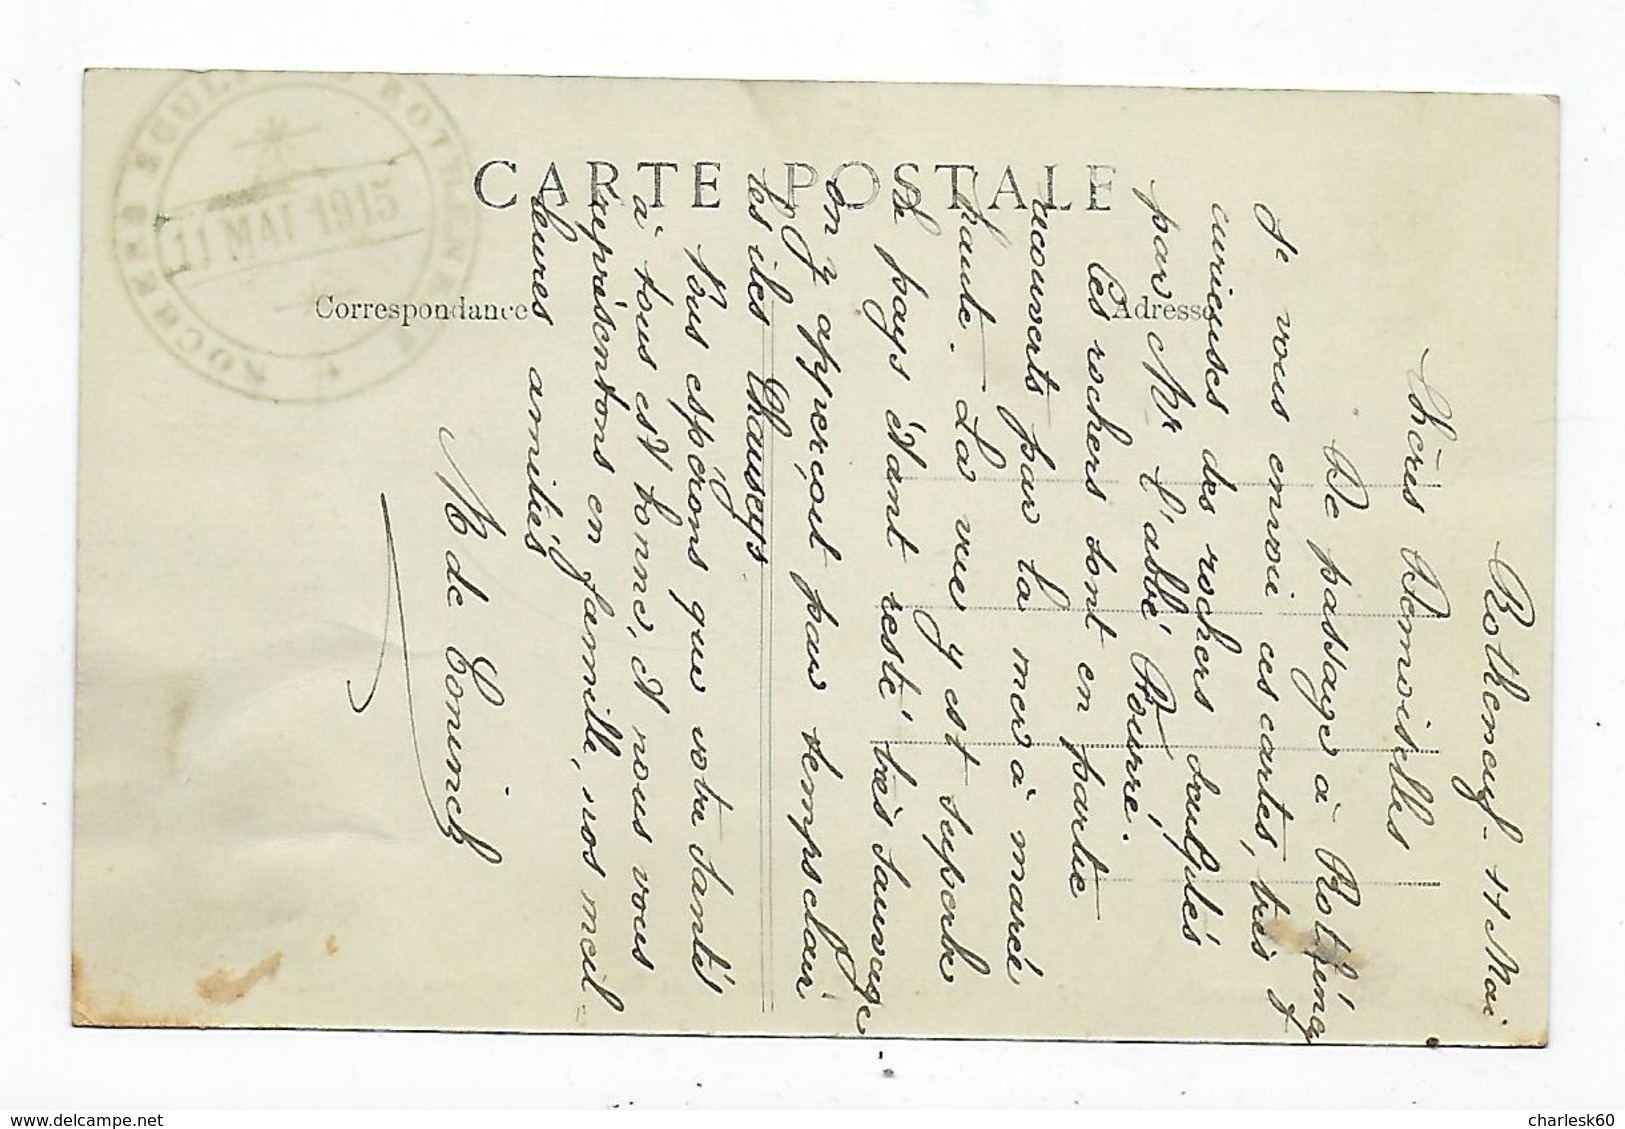 ROCHERS SCUL
11 MAI 1915
CARTE POSTALE
Correspondance
Adresse
Rotheneuf - 11 Mai
Chères Demoiselles
De passage à
Je vous envoie ces cartes, très
curieuses des rochers sculptés
par Mr l'abbé Fouré.
Ces rochers sont en partie
recouverts par la mer à marée
haute. La vue y est superbe
le pays étant resté très sauvage
On y apperçoit par temps clair
les iles Chauseys
Nous espérons que votre santé
à tous est bonne, et nous vous
représentons en famille, nos meil-
leures amitiés
M de
charlesk60